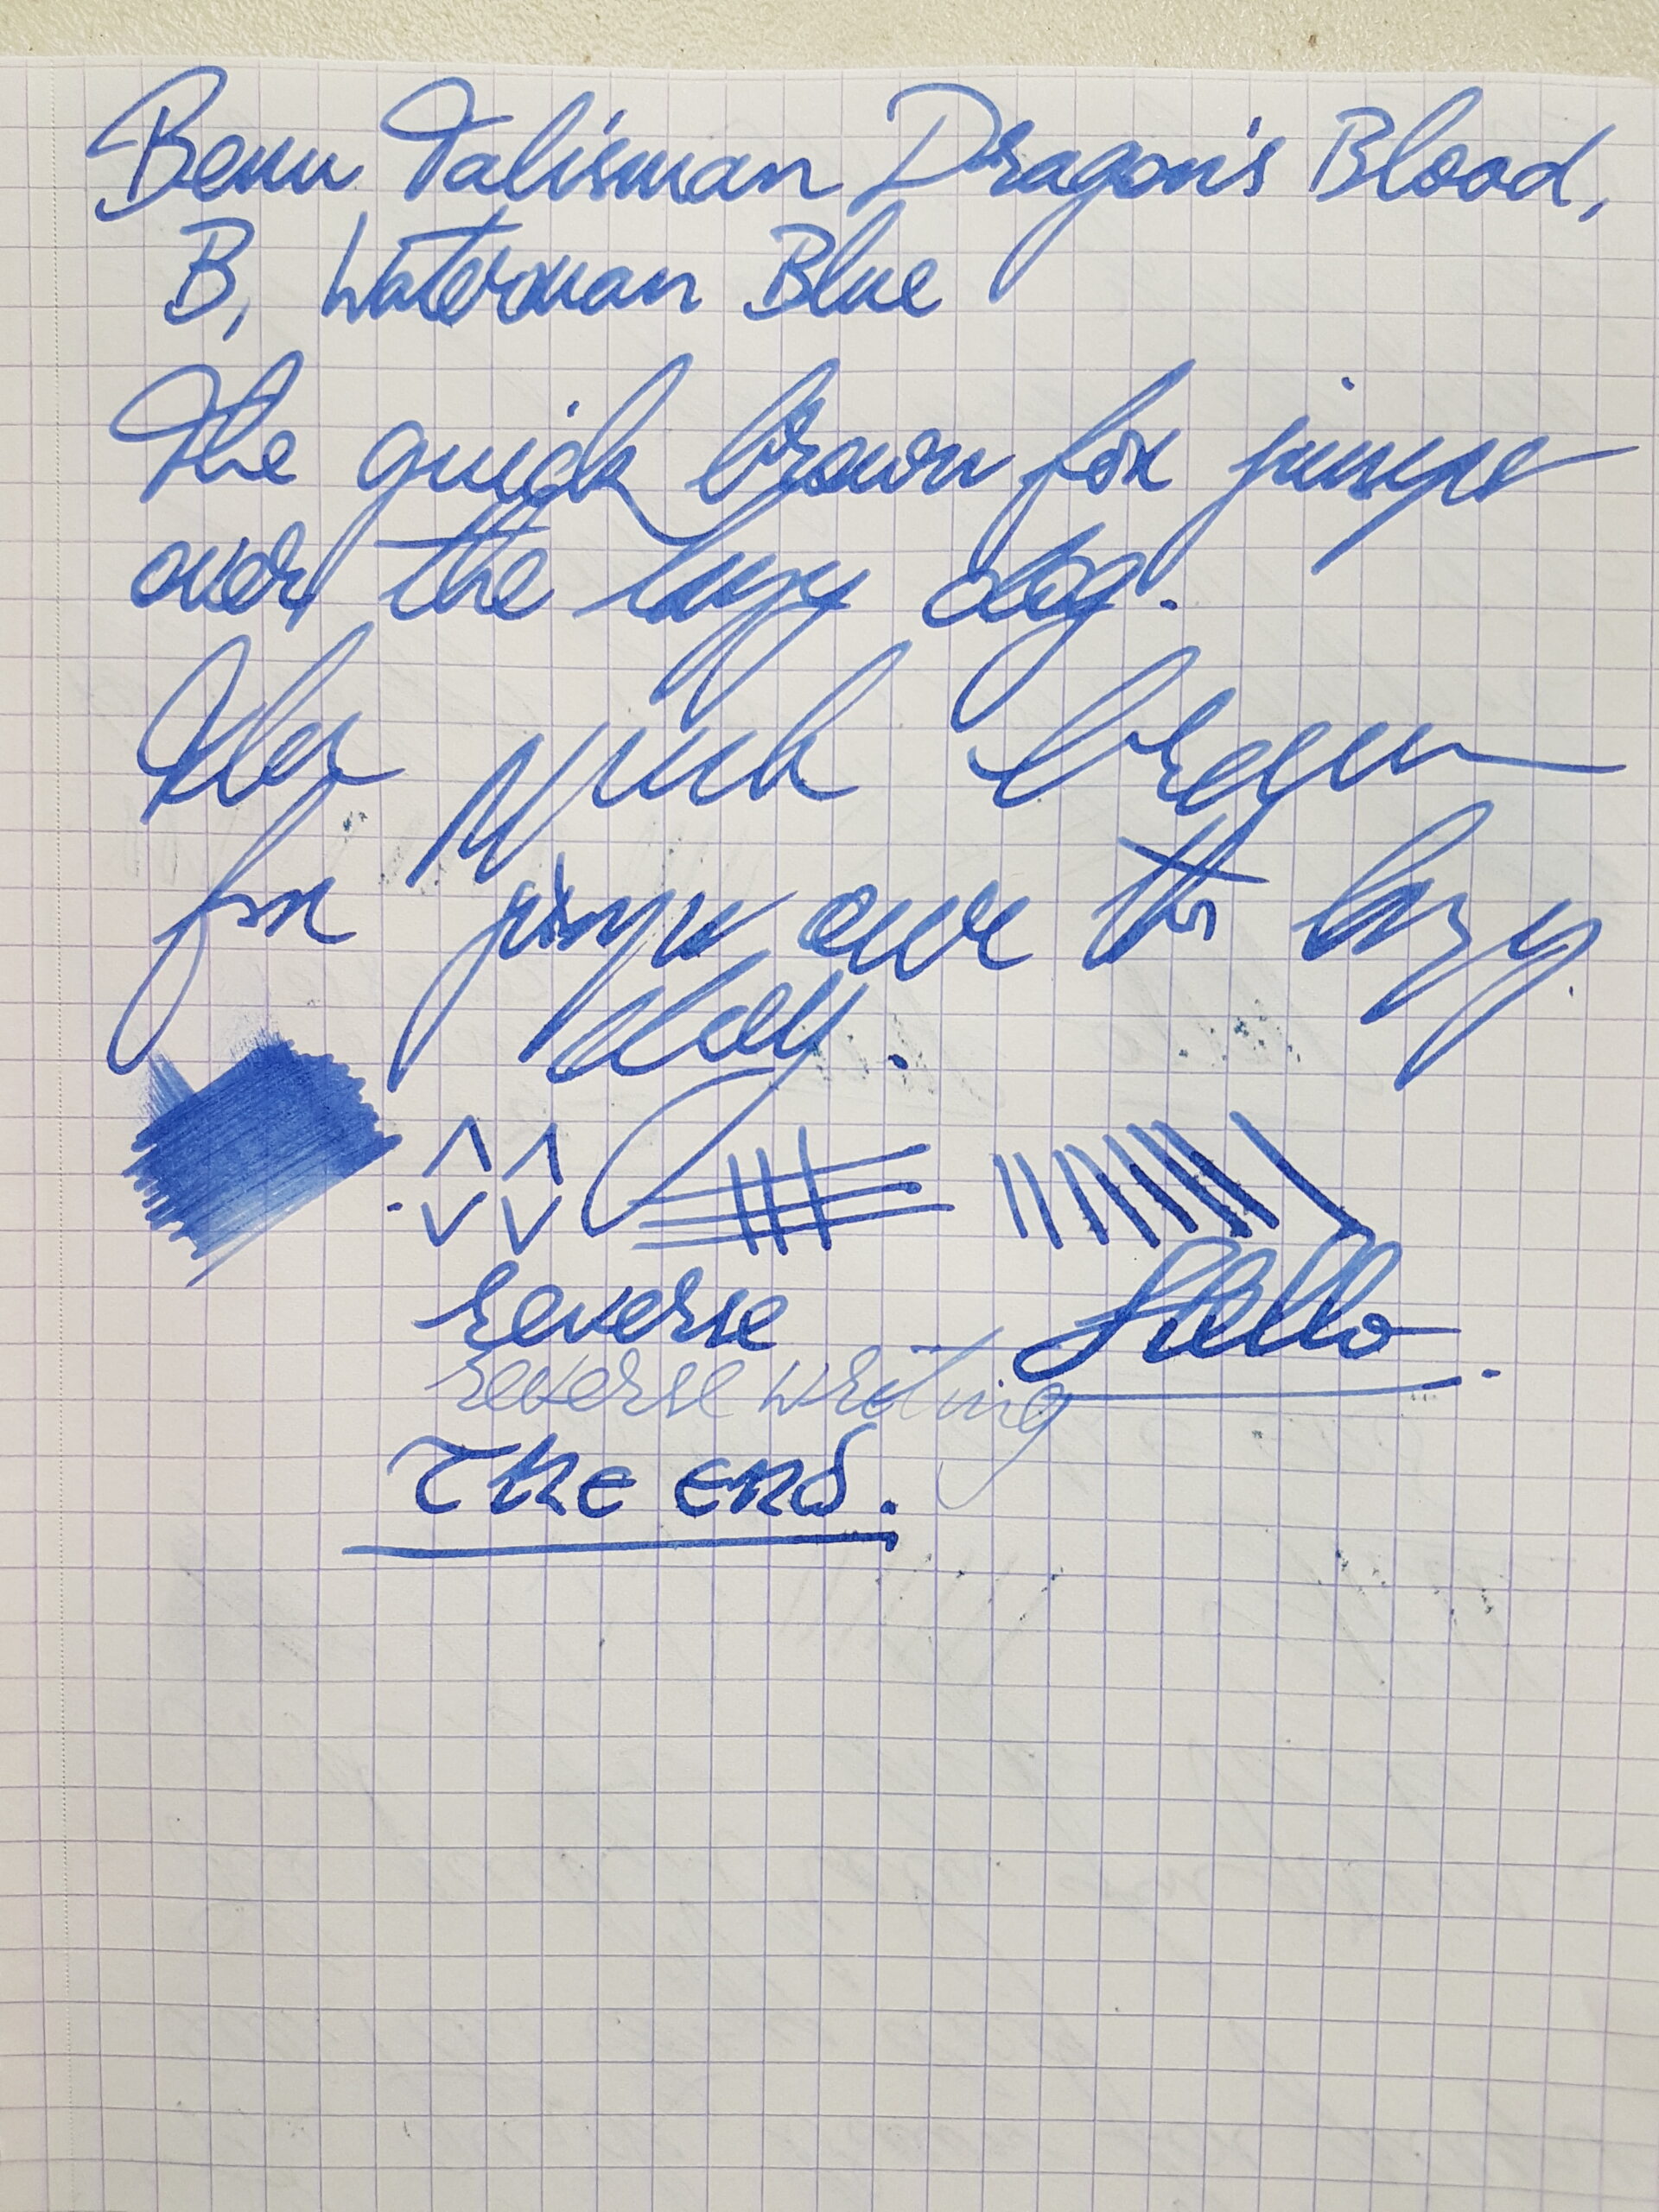 Benu Talisman Dragon's Blood,
B, Waterman Blue
The quick brown fox jumps
over the lazy dog.
The quick brown
fox jumps over the lazy
dog.
reverse Hello.
reverse writing
The end.